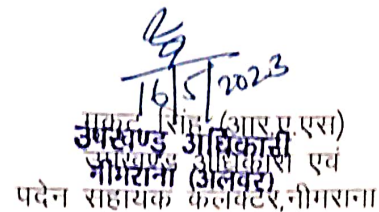 16/5/2023
सिंह (आर.ए.एस)
उपखण्ड अधिकारी
उपखण्ड अधिकारी एवं
नीमराना (अलवर)
पदेन सहायक कलक्टर, नीमराना